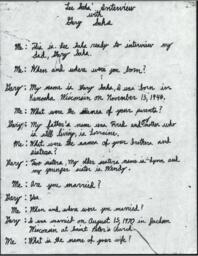 Lee Saha' Interview
with
Gary Saha
Me: This is Lee Saha ready to interview my
dad, Gary Saha.
Me: When and where were you born?
Gary: My name is Gary Saha, I was born in
Kenosha, Wisconsin on November 15, 1946.
Me: What were the names of your parents?
Gary: My father's name was and mother who
is still living, is Lorraine.
Me: What were the names of your brothers and
sisters?
Gary: Two sisters, My older sisters name is Lynn and
my younger sister is Wendy.
Me: Are you married?
Gary: Yes
Me: When and where were you married?
Gary: I was married on August 15, 1970 in
Wisconsin at Saint Peter's church.
Me: What is the name of your wife?